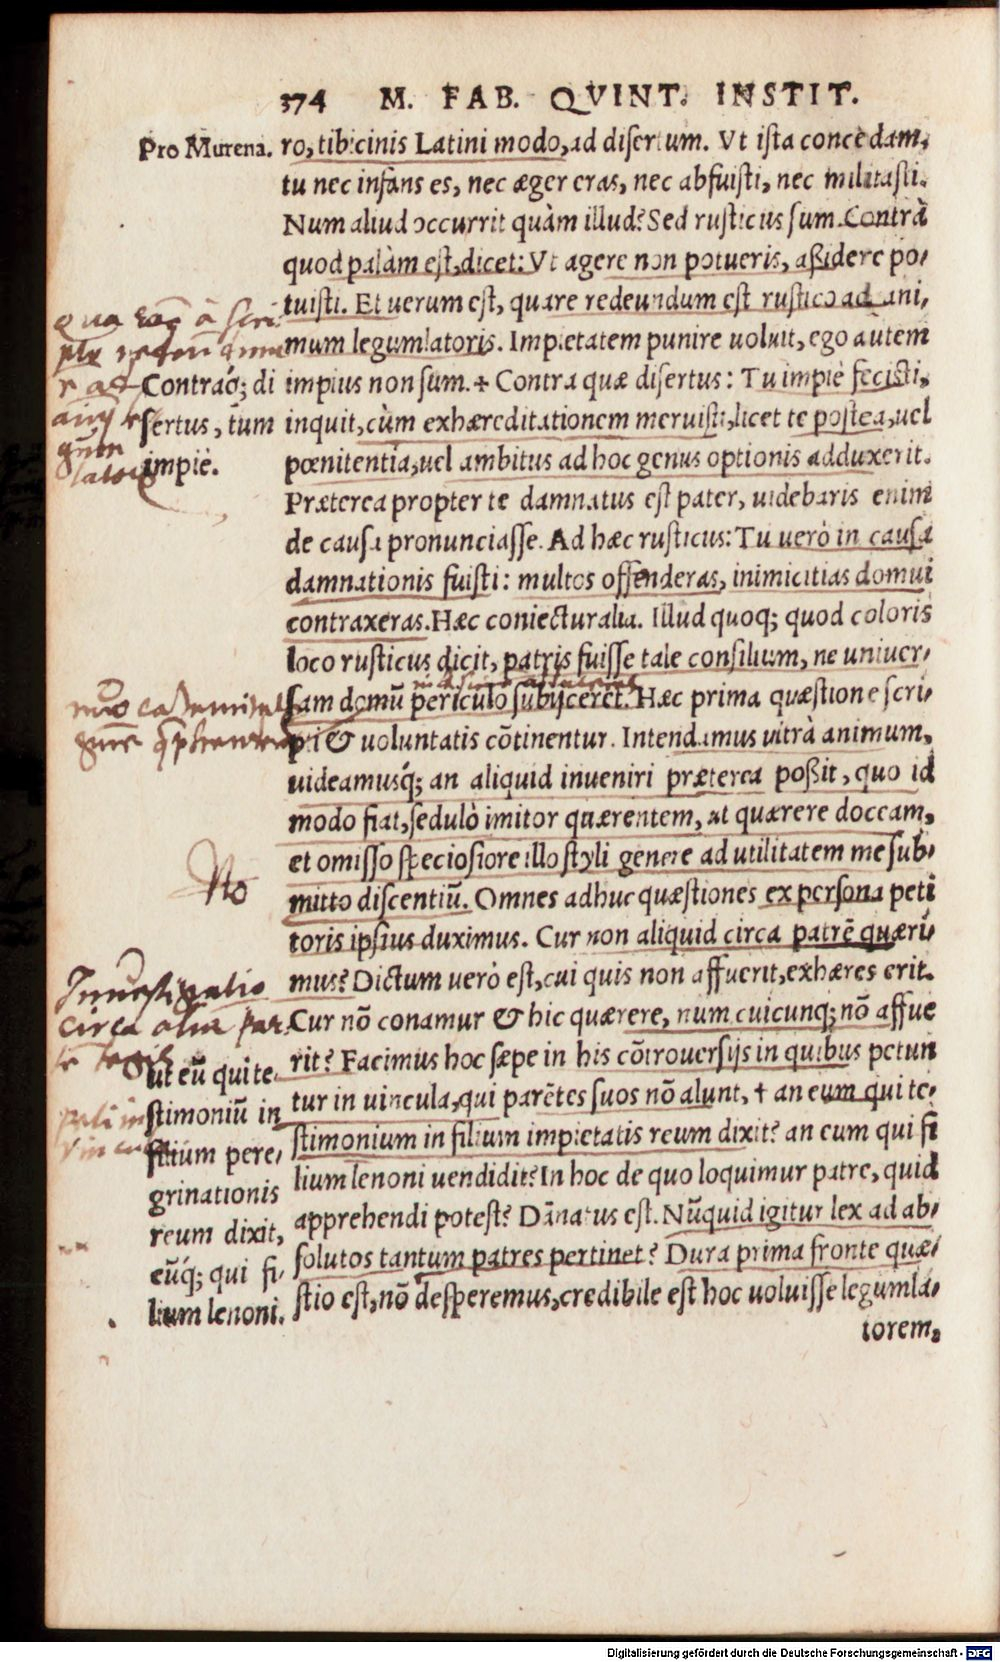 374 M. FAB. QVINT. INSTIT.
Pro Murena.
ro, tibicinis Latini modo, ad disertum. Vt ista concèdam,
tu nec infans es, nec æger eras, nec abfuisti, nec militasti.
Num aliud occurrit quàm illud? Sed rusticus sum. Contrà
quod palàm est, dicet: Vt agere non potueris, aßidere po-
tuisti. Et uerum est, quare redeundum est rustico ad ani-
mum legumlatoris. Impietatem punire uoluit, ego autem
impius non sum. + Contra quæ disertus: Tu impiè fecisti,
inquit, cùm exhæreditationem meruisti, licet te postea, uel
pœnitentia, uel ambitus ad hoc genus optionis adduxerit.
Præterea propter te damnatus est pater, uidebaris enim
de causa pronunciasse. Ad hæc rusticus: Tu uerò in causa
damnationis fuisti: multos offenderas, inimicitias domui
contraxeras. Hæc coniecturalia. Illud quoq; quod coloris
loco rusticus dicit, patris fuisse tale consilium, ne uniuer-
sam domũ periculo subijceret. Hæc prima quæstione scri-
pti & uoluntatis cõtinentur. Intendamus ultrà animum,
uideamusq́; an aliquid inueniri præterea poßit, quo id
modo fiat, sedulò imitor quærentem, ut quærere doceam,
et omisso speciosiore illo styli genere ad utilitatem me sub-
mitto discentiũ. Omnes adhuc quæstiones ex persona peti
toris ipsius duximus. Cur non aliquid circa patrẽ quæri-
mus? Dictum uerò est, cui quis non affuerit, exhæres erit.
Cur nõ conamur & hic quærere, num cuicunq; nõ affue
rit? Facimus hoc sæpe in his cõtrouersijs in quibus petun
tur in uincula, qui parẽtes suos nõ alunt, † an eum qui te-
stimonium in filium impietatis reum dixit? an eum qui fi
lium lenoni uendidit? In hoc de quo loquimur patre, quid
apprehendi potest? Dãnatus est. Nũquid igitur lex ad ab-
solutos tantum patres pertinet? Dura prima fronte quæ-
stio est, nõ desperemus, credibile est hoc uoluisse legumla-
torem,
Contraq́; di
sertus, tum
impiè.
No
Inuestigatio
circa
ut eũ qui te-
stimoniũ in
filium pere-
grinationis
reum dixit,
eũq́; qui fi-
lium lenoni.
Digitalisierung gefördert durch die Deutsche Forschungsgemeinschaft - DFG